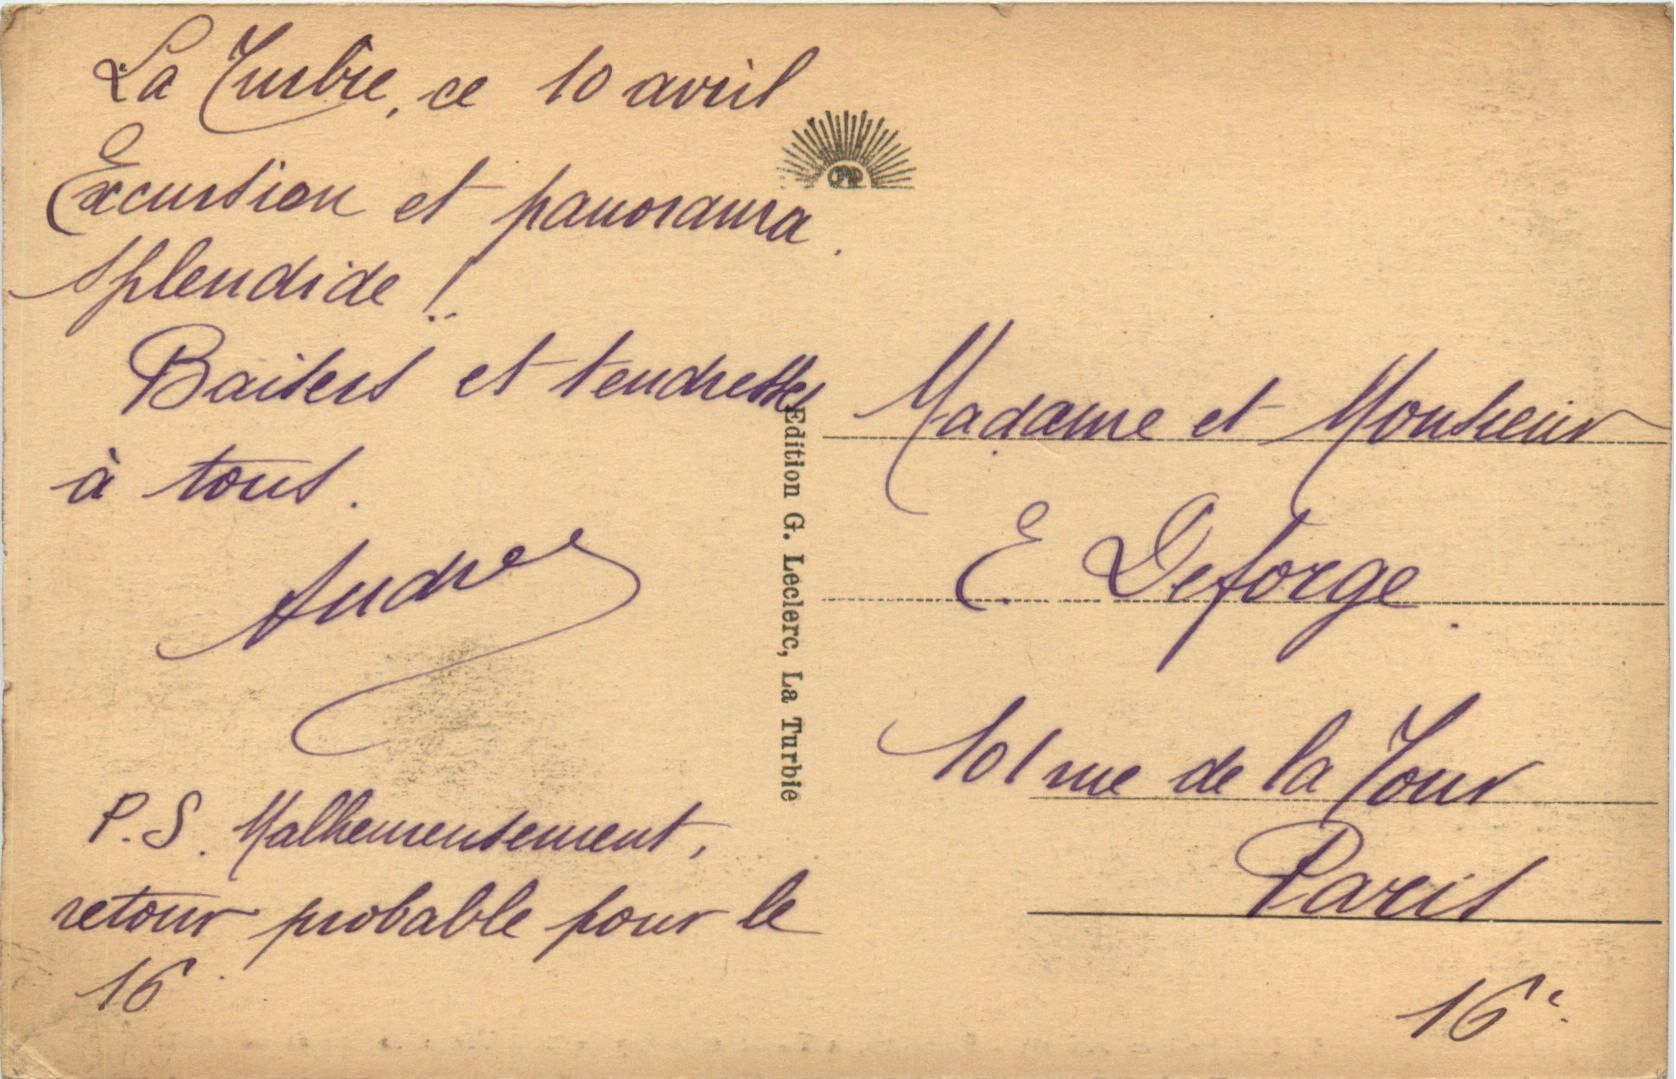 La Turbie, ce 10 avril
Excursion et panorama
splendide !..
Baisers et tendresses
à tous.
André
P.S. Malheureusement,
retour probable pour le
16
Edition G. Leclerc, La Turbie
Madame et Monsieur
E. Deforge.
101 rue de la Tour
Paris
16e